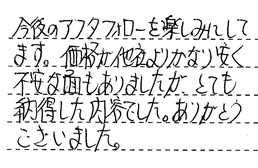 今後のアフタフォローを楽しみにして
ます。価格が他社よりかなり安く
不安な面もありましたが、とても
納得した内容でした。ありがとう
ございました。